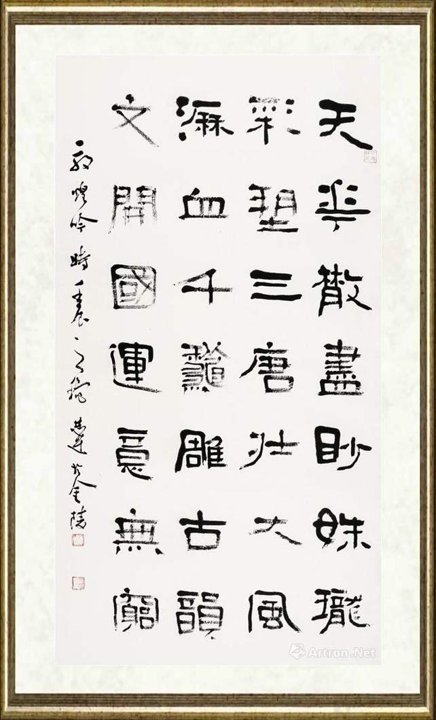 天華散盡眇姝瓏
彩塑三唐壯大風
血千龕雕古韻
文開國運意無窮
敦煌吟 時壬辰之 書金陵
Artron.Net